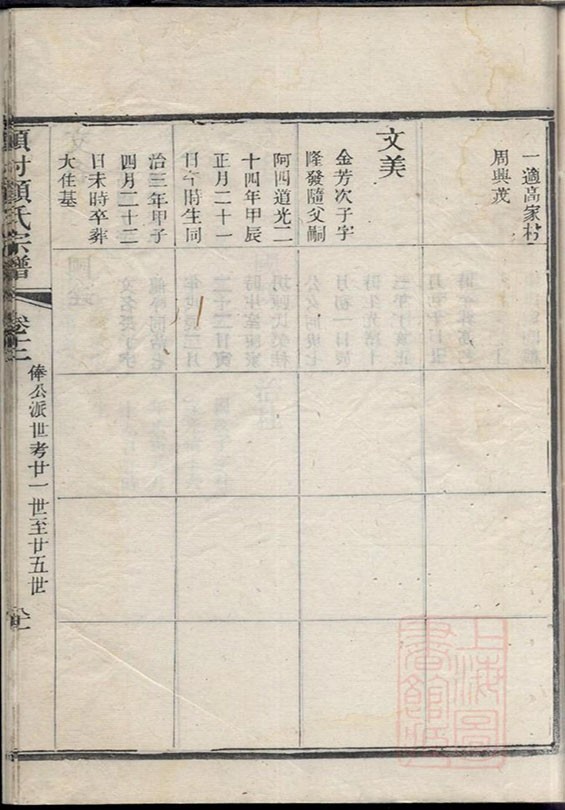 一適高家村
周興茂
文美
金芳次子字
隆發隨父嗣
阿四道光二
十四年甲辰
正月二十一
日午時生同
治三年甲子
四月二十二
日未時卒葬
大住基
顧氏宗譜
卷十二
俸公派世考廿一世至廿五世
上海圖書館藏